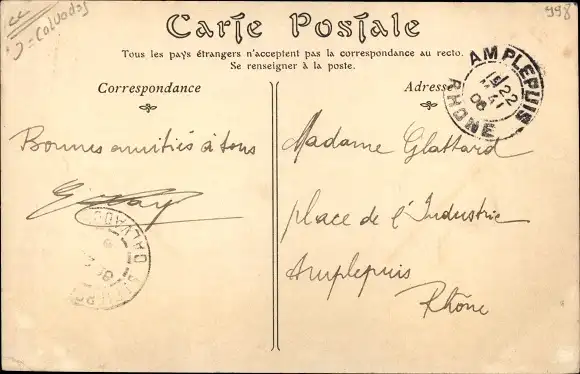 = Calvados
998
Carte Postale
Tous les pays étrangers n'acceptent pas la correspondance au recto.
Se renseigner à la poste.
Correspondance
Adresse
AMPLEPUIS
22
06
RHONE
Bonnes amitiés à tous
Madame Glattard
place de l'Industrie
Amplepuis
Rhône
CALVADOS